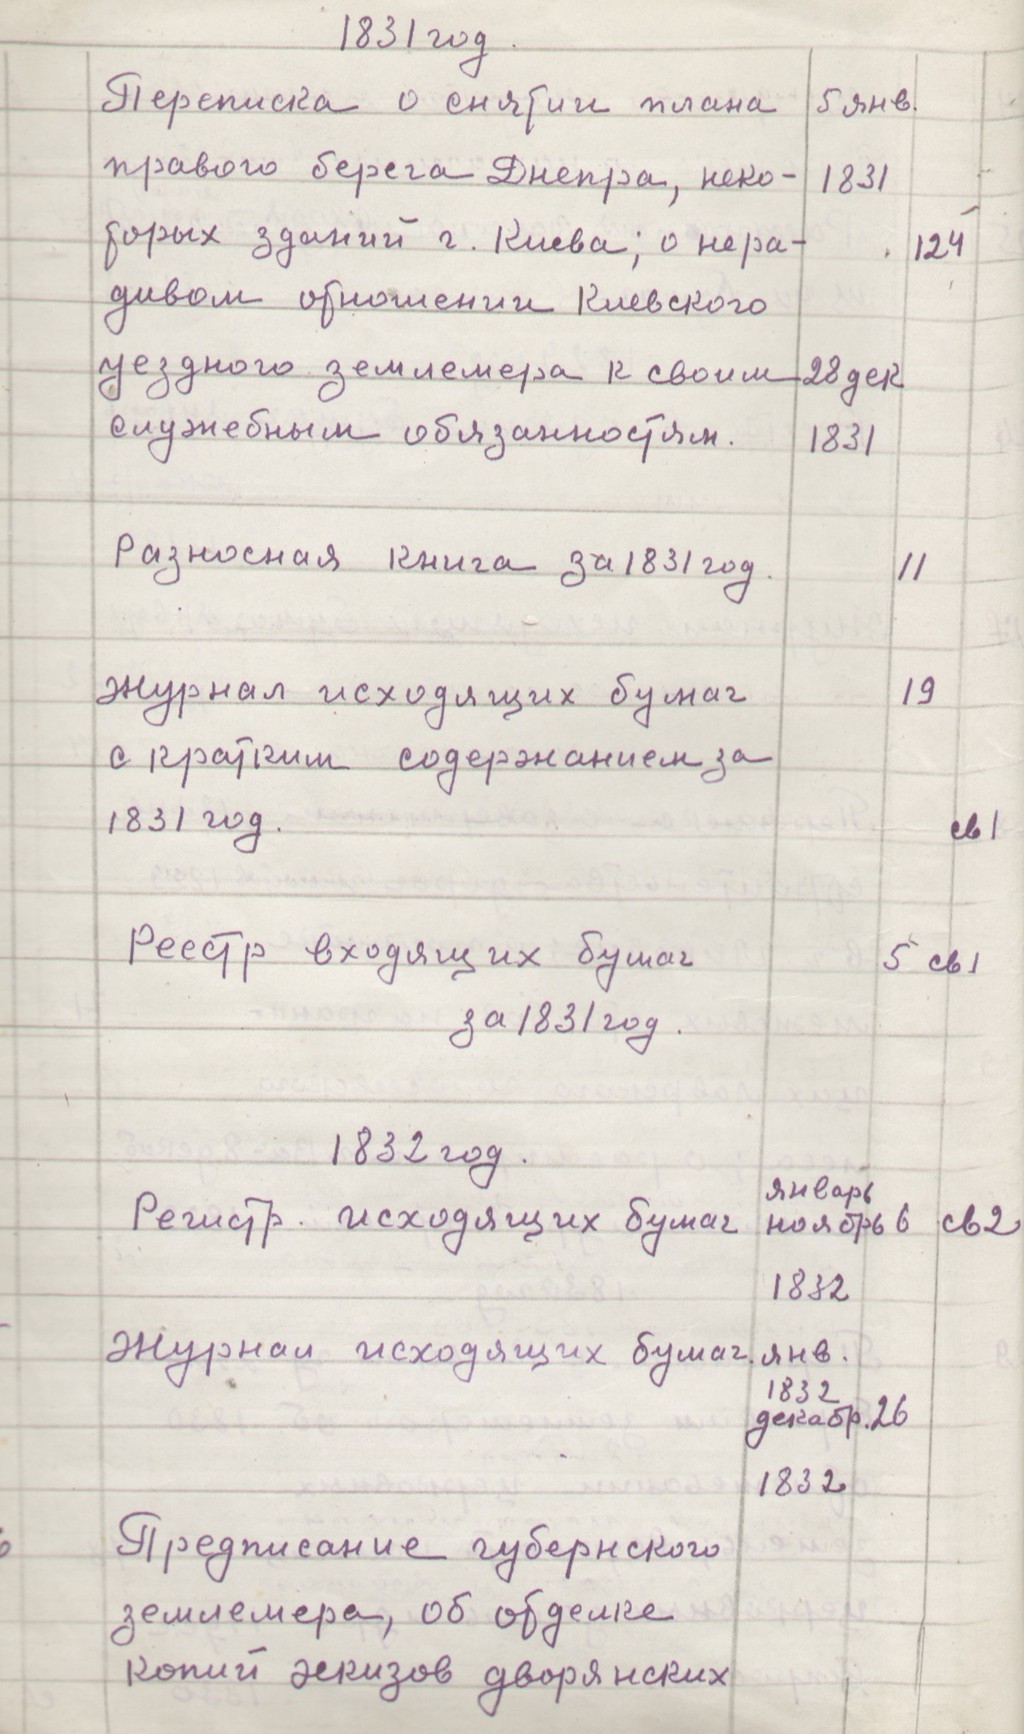 1831 год.
Переписка о снятии плана 5 янв.
правого берега Днепра, неко- 1831
торых зданий г. Киева; о нера- 124
дивом отношении Киевского
уездного землемера к своим 28 дек
служебным обязанностям. 1831
Разносная книга за 1831 год. 11
Журнал исходящих бумаг 19
с кратким содержанием за
1831 год. св 1
Реестр входящих бумаг 5 св 1
за 1831 год.
1832 год.
январь
Регистр. исходящих бумаг ноябрь 6 св 2
1832
Журнал исходящих бумаг. янв.
1832
декабр. 26
1832
Предписание губернского
землемера, об отделке
копий эскизов дворянских